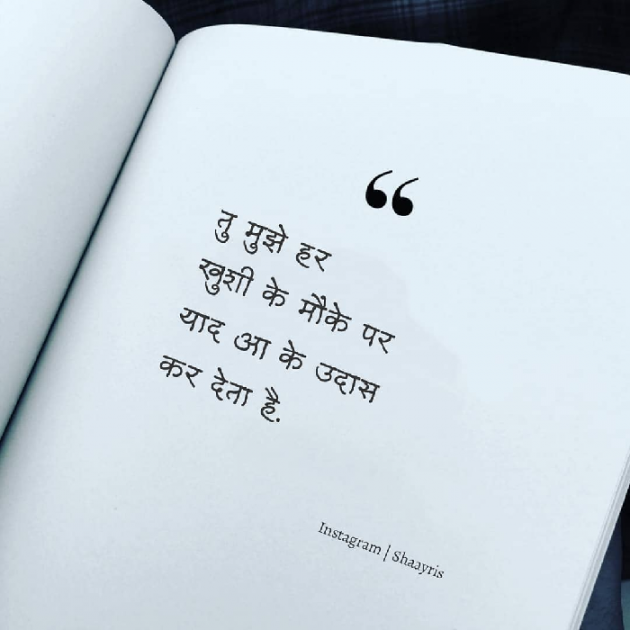 “
तु मुझे हर
खुशी के मौके पर
याद आ के उदास
कर देता है.
Instagram | Shaayris